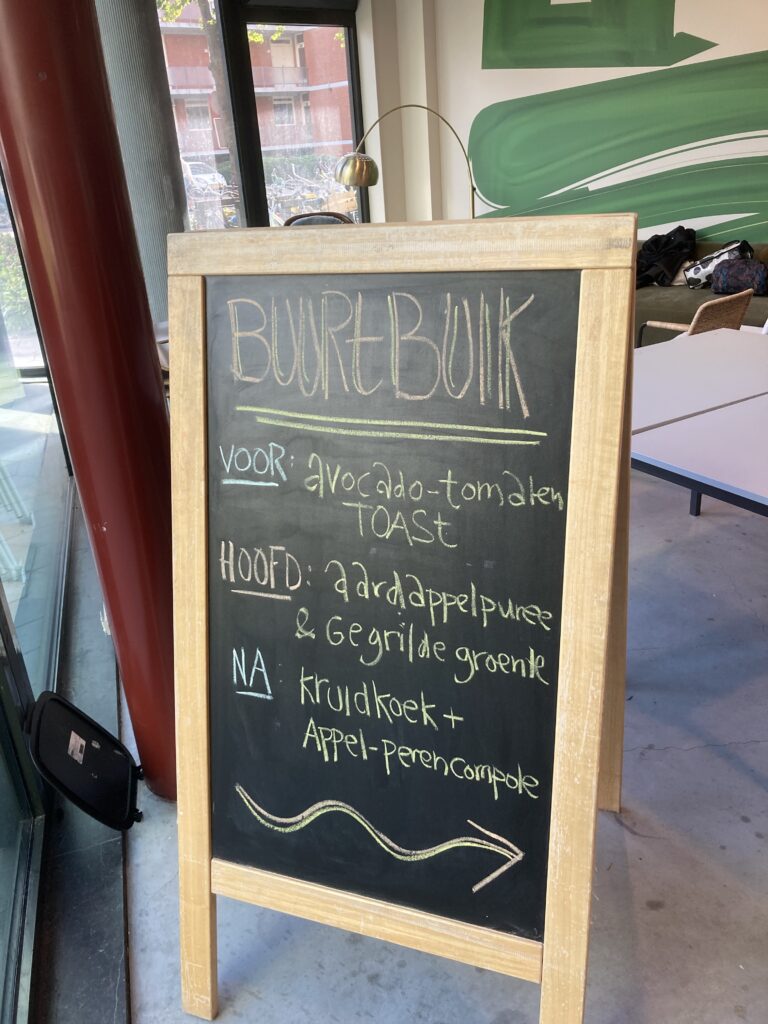 BUURtBUIK
VOOR: avocado-tomaten
TOASt
HOOFD: aardappelpuree
& Gegrilde groente
NA: kruidkoek+
Appel-perencompote